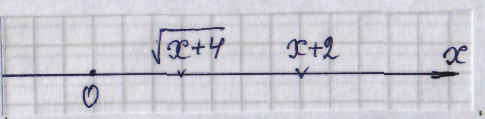 √x+4 x+2 x
0